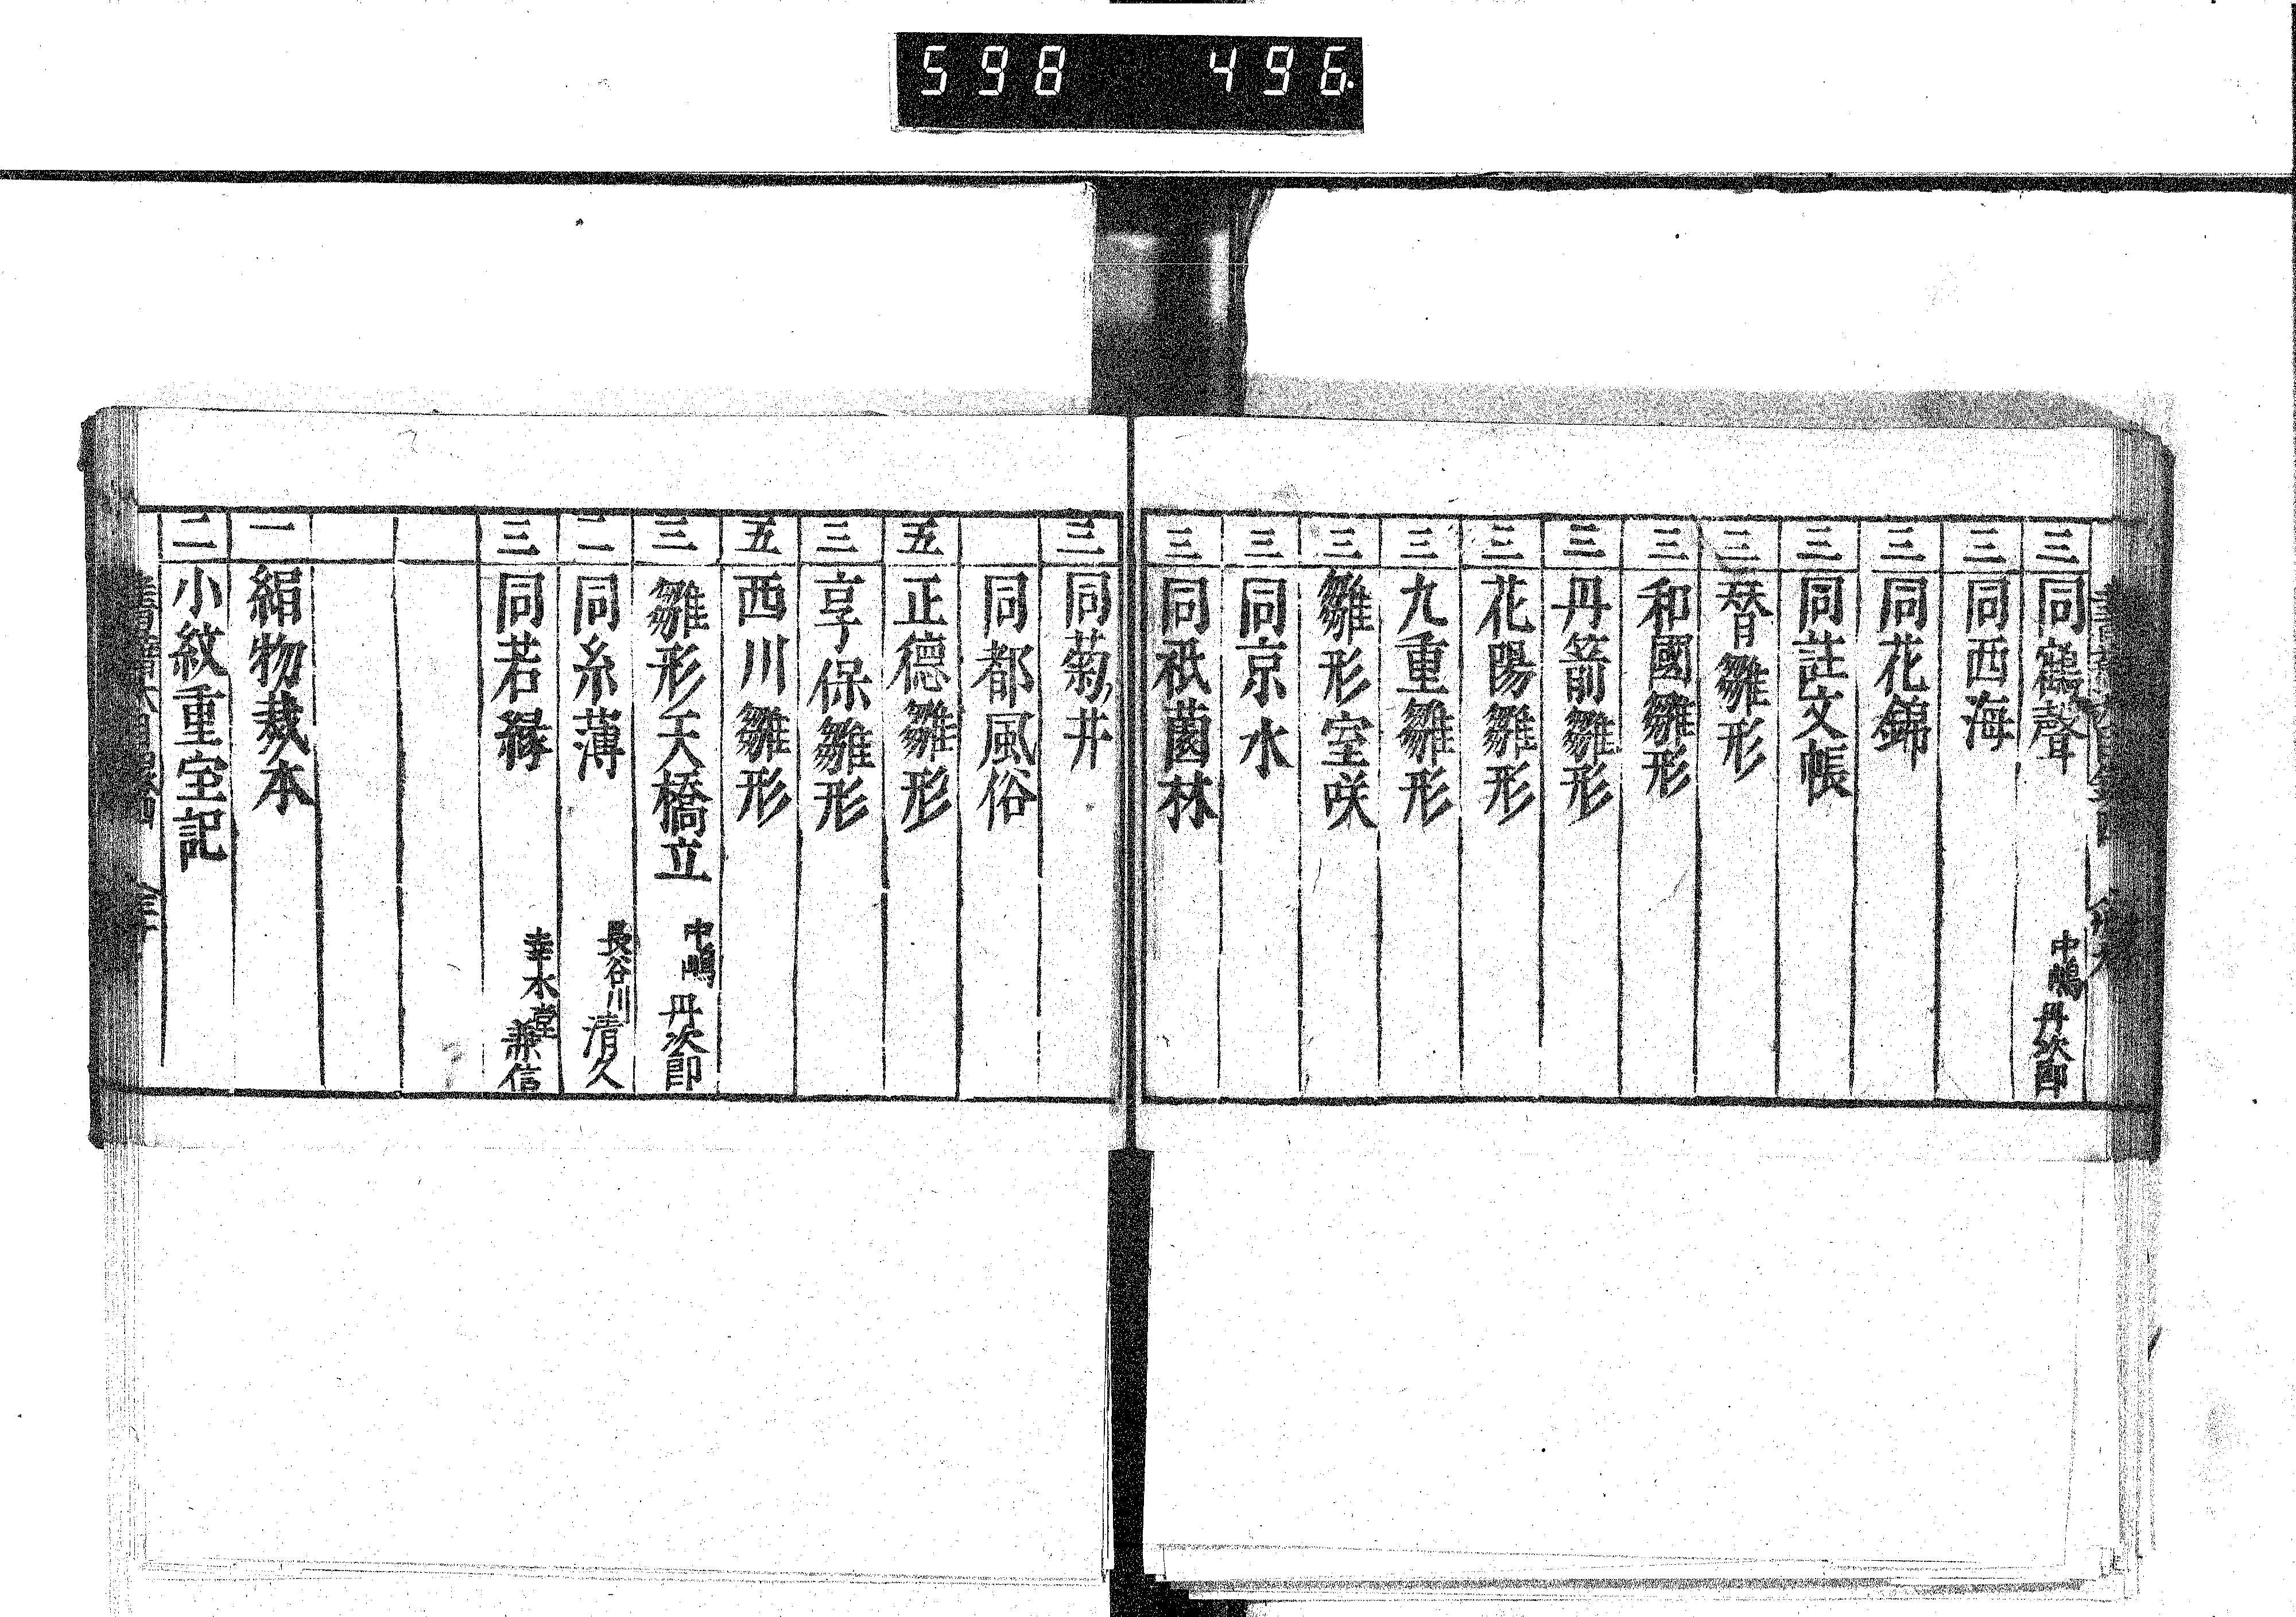 598 496.
三 同鶴聲 中嶋丹次郎
三 同西海
三 同花錦
三 同註文帳
三 替雛形
三 和國雛形
三 丹箭雛形
三 花陽雛形
三 九重雛形
三 雛形室咲
三 同京水
三 同祇薗林
三 同菊井
同都風俗
五 正德雛形
三 享保雛形
五 西川雛形
三 雛形天橋立 中嶋丹次郎
二 同糸薄 長谷川清久
三 同若縁 幸水堂兼信
一 絹物裁本
二 小紋重宝記